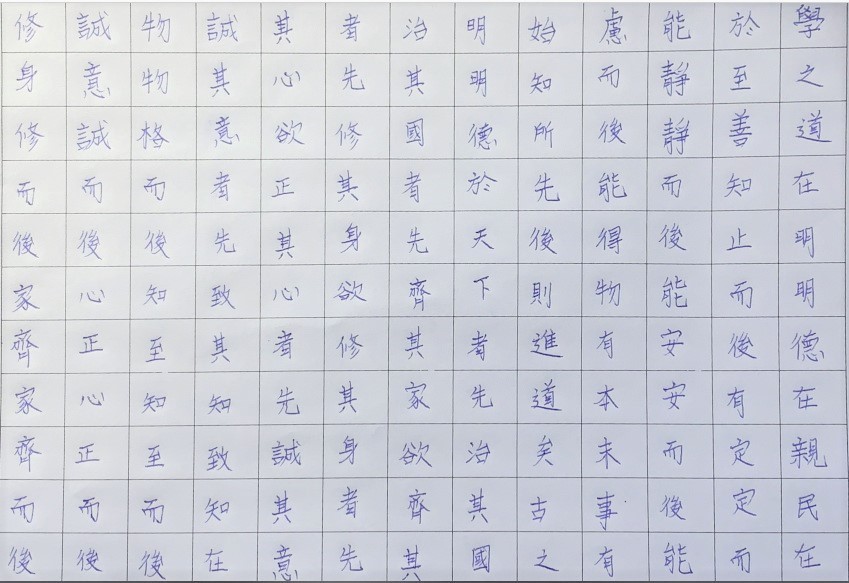 學之道在明明德在親民在
於至善知止而後有定定而
能靜靜而後能安安而後能
慮而後能得物有本末事有
始知所先後則進道矣古之
明明德於天下者先治其國
治其國者先齊其家欲齊其
者先修其身欲修其身者先
其心欲正其心者先誠其意
誠其意者先致其知致知在
物物格而後知至知至而後
誠意誠而後心正心正而後
修身修而後家齊家齊而後